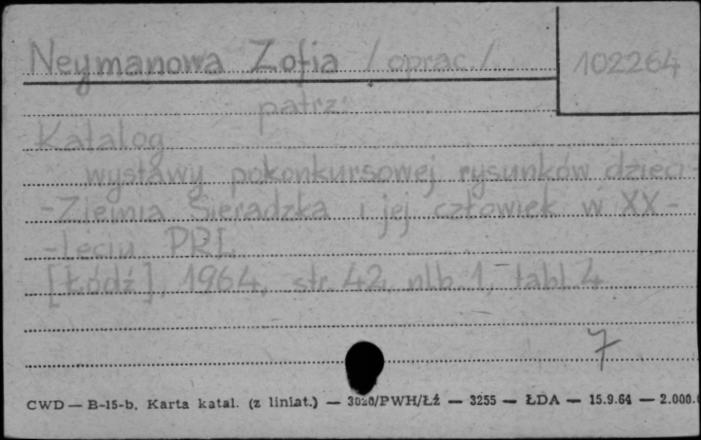 Neymanowa Zofia /oprac./ 102264
patrz:
Katalog
wystawy pokonkursowej rysunków dzieci-
-Ziemia Sieradzka i jej człowiek w XX-
-leciu PRL
[Łódź], 1964, str. 42, nlb. 1, tabl. 4
7
CWD — B-15-b, Karta katal. (z liniat.) — 3020/PWH/Łź — 3255 — ŁDA — 15.9.64 — 2.000.